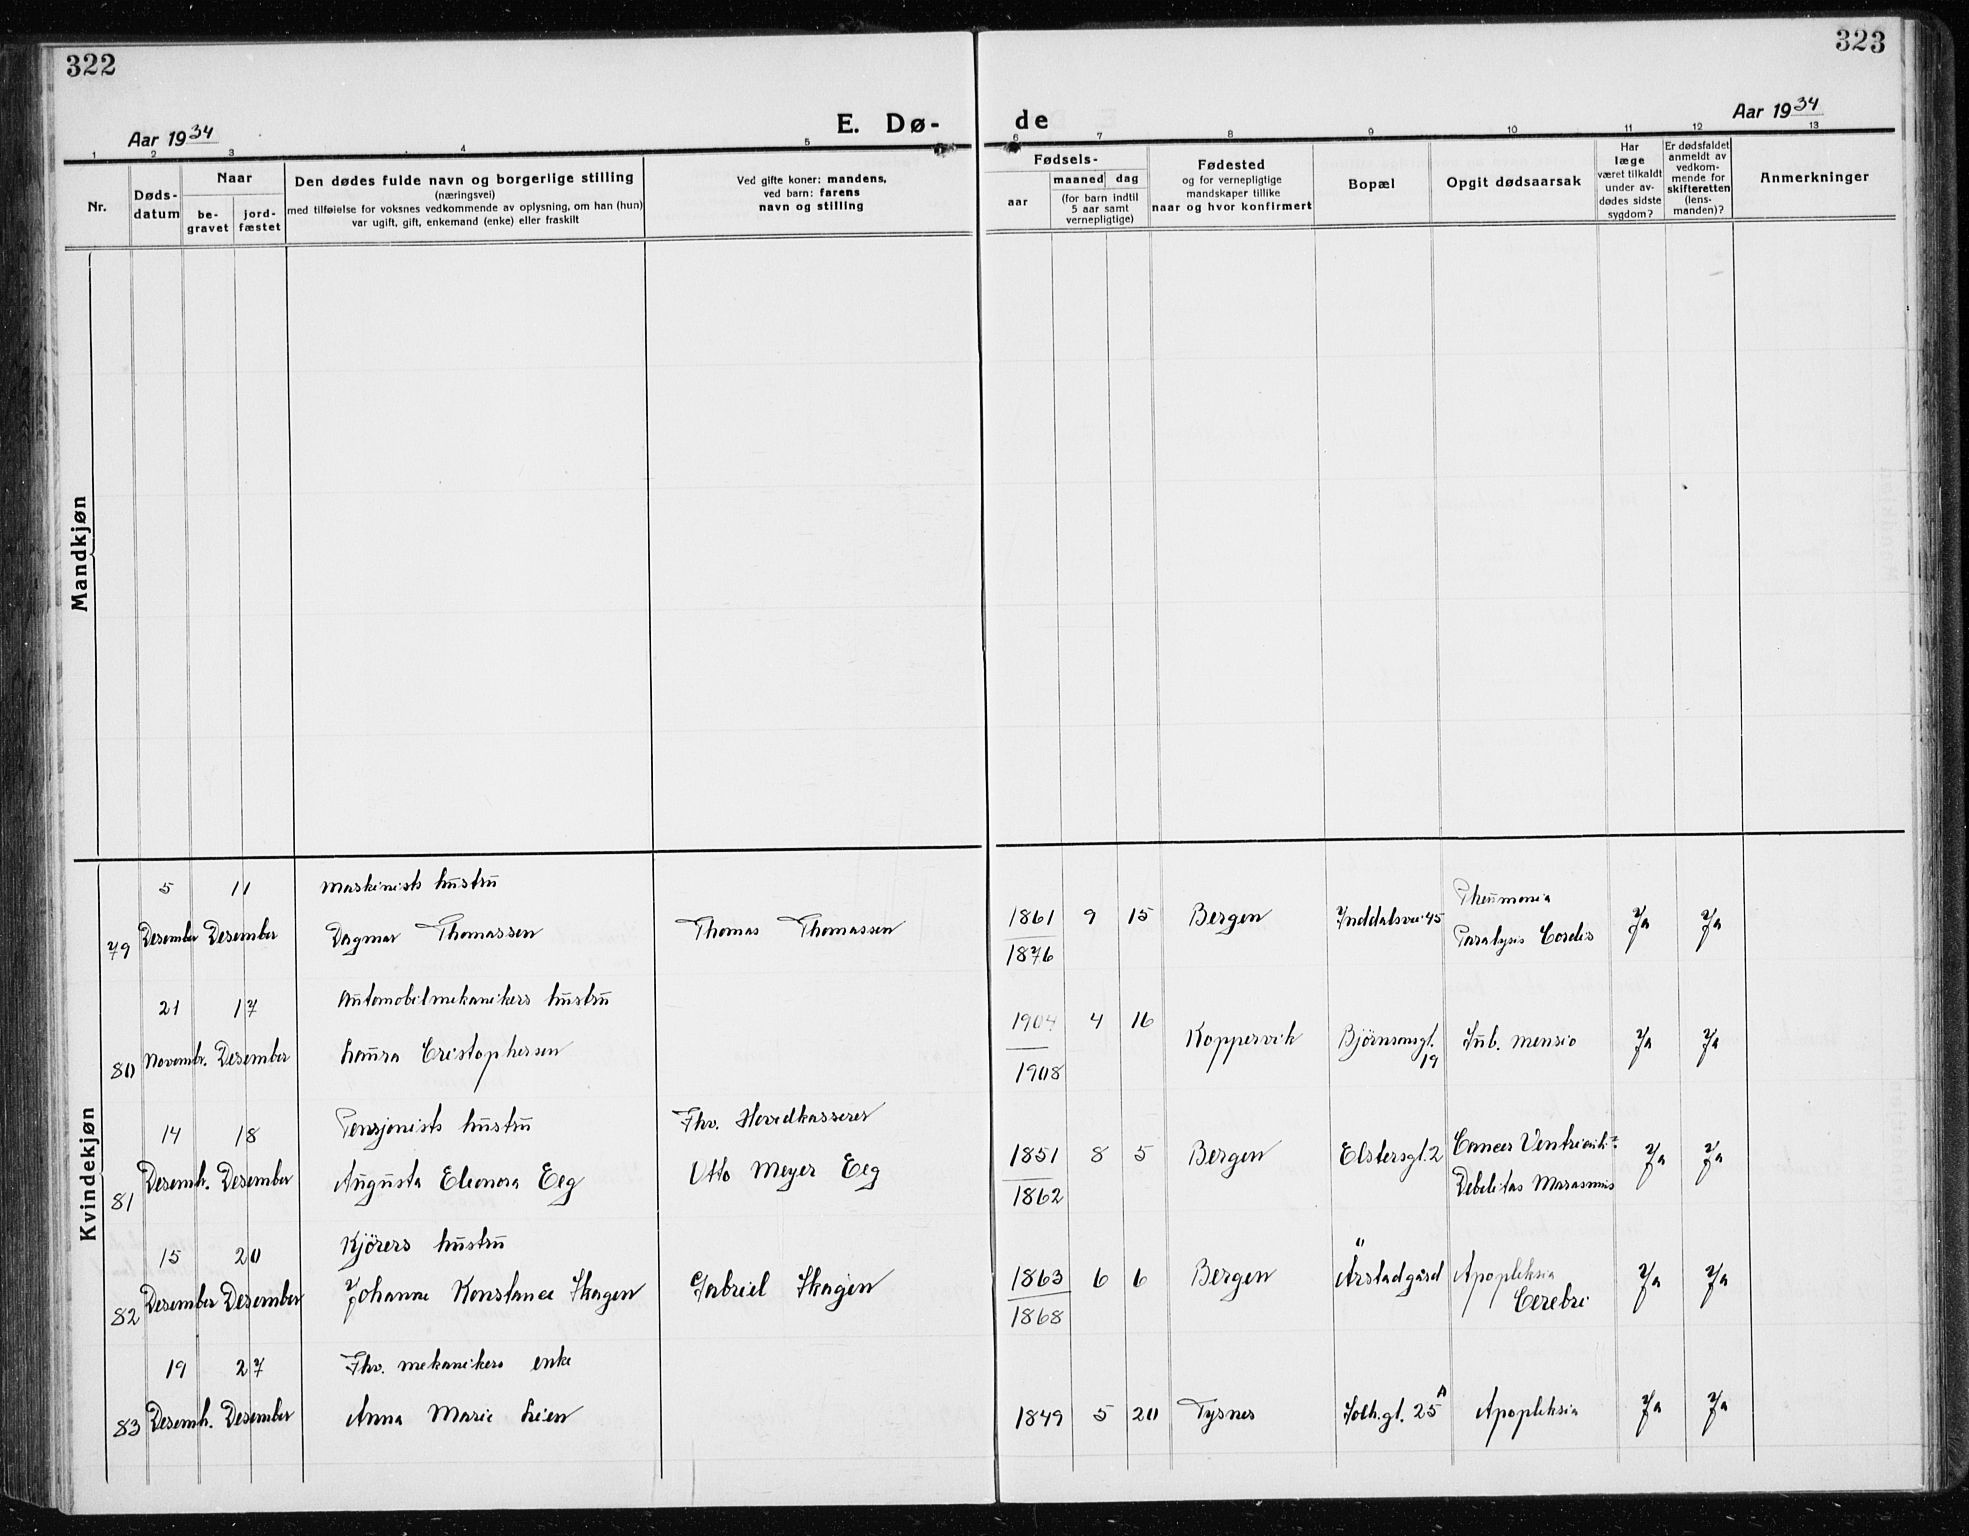 322
323
Aar 1934
E. Dø-
de
Aar 1934
1 2 3 4 5 6 7 8 9 10 11 12 13
Nr.
Døds-
datum
Naar
be-
gravet
jord-
fæstet
Den dødes fulde navn og borgerlige stilling
(næringsvei)
med tilføielse for voksnes vedkommende av oplysning, om han (hun)
var ugift, gift, enkemand (enke) eller fraskilt
Ved gifte koner: mandens,
ved barn: farens
navn og stilling
Fødsels-
aar
maaned dag
(for barn indtil
5 aar samt
vernepligtige)
Fødested
og for vernepligtige
mandskaper tillike
naar og hvor konfirmert
Bopæl
Opgit dødsaarsak
Har
læge
været tilkaldt
under av-
dødes sidste
sygdom?
Er dødsfaldet
anmeldt av
vedkom-
mende for
skifteretten
(lens-
manden)?
Anmerkninger
Mandkjøn
Kvindekjøn
5 11 Maskinists hustru
79 Desember Desember Dagmar Thomassen Thomas Thomassen 1861 9 15 Bergen Inddalsvei 45 Pneumonia
Paralysis Cordis Ja Ja
1876
21 17 Automobilmekanikers hustru
80 Novembr. Desember Laura Cristophersen 1904 4 16 Koppervik Bjørnsonsgt.
19 Sub. mensio Ja Ja
1908
14 18 Pensjonists hustru Fhv. Hovedkasserer
81 Desemb. Desember Augusta Eleonora Eeg Otto Meyer Eeg 1851 8 5 Bergen Elstersgt. 2 Cancer
Debelitas Marasmus Ja Ja
1862
15 20 Kjörers hustru
82 Desember Desember Johanne Konstance Skagen Gabriel Skagen 1863 6 6 Bergen Årstadgård Apopleksia
Cerebri Ja Ja
1868
19 27 Fhv. mekanikers enke
83 Desemb. Desember Anna Marie Leien 1849 5 20 Tysnes Solh.gt. 25 A Apopleksia Ja Ja